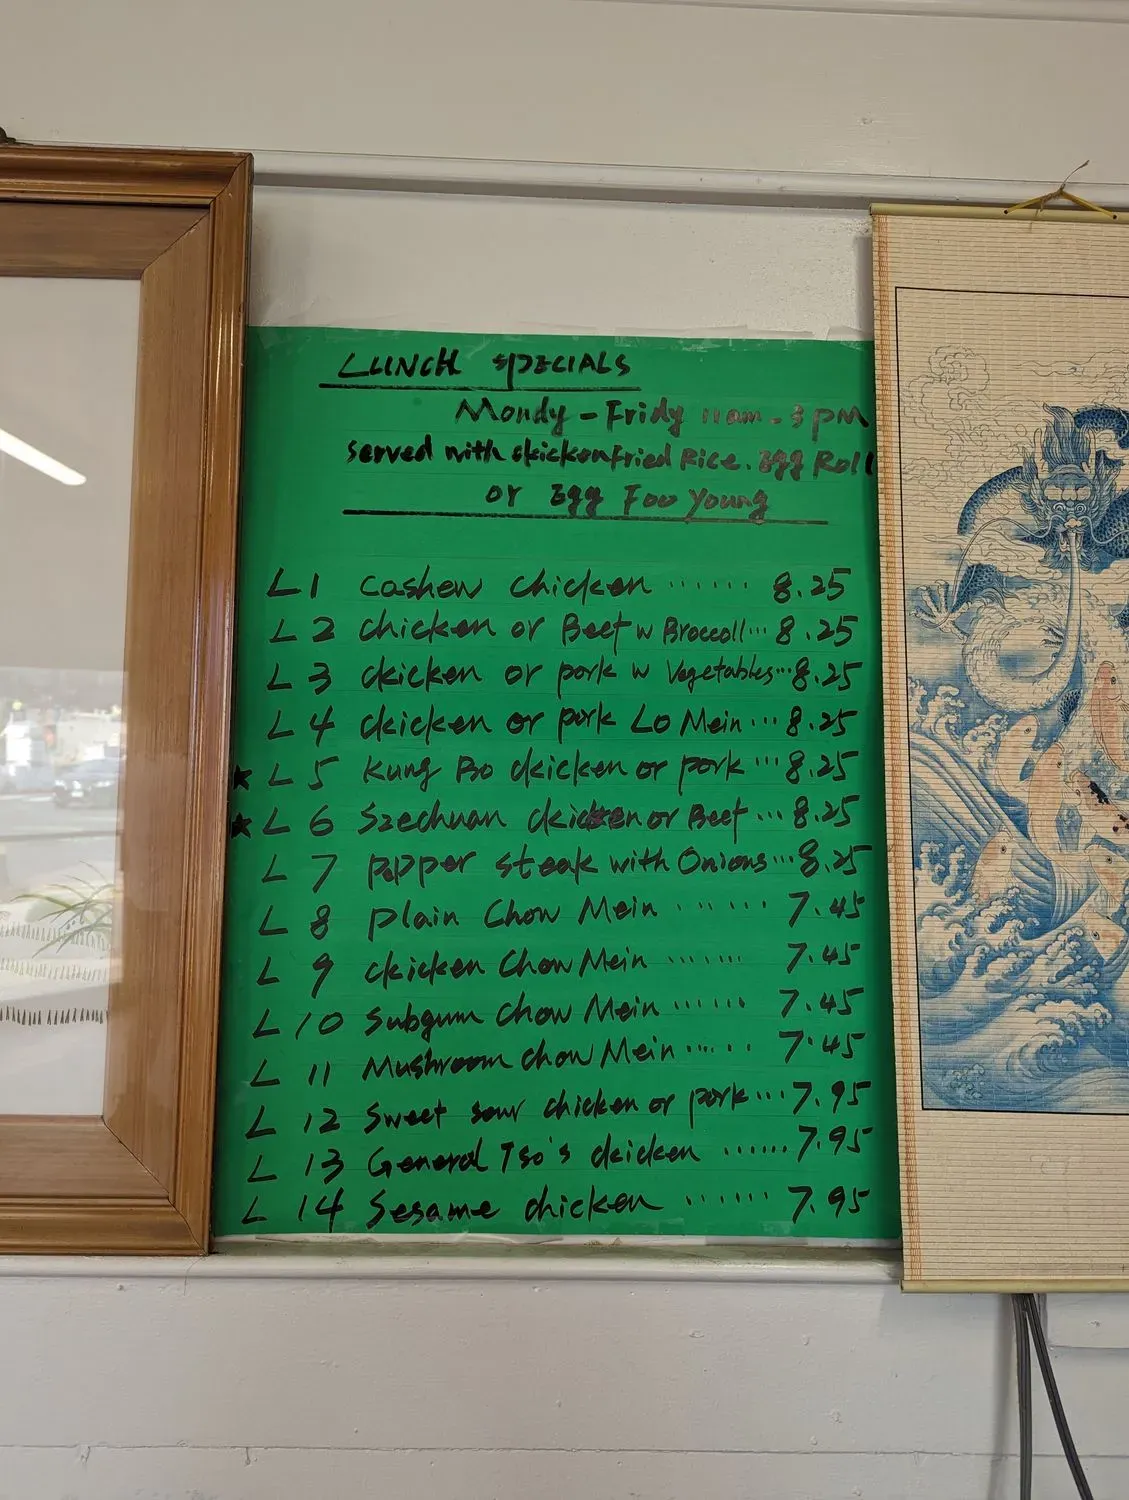 LUNCH SPECIALS
Mondy - Fridy 11am - 3PM
served with chicken fried Rice. Egg Roll
or Egg Foo Young
L 1 cashew chicken ...... 8.25
L 2 chicken or Beef w Broccoli... 8.25
L 3 chicken or pork w Vegetables... 8.25
L 4 chicken or pork Lo Mein ... 8.25
★ L 5 Kung Bo chicken or pork ... 8.25
★ L 6 Szechuan chicken or Beef ... 8.25
L 7 pepper steak with Onions... 8.25
L 8 plain Chow Mein ...... 7.45
L 9 chicken Chow Mein ...... 7.45
L 10 Subgum Chow Mein ...... 7.45
L 11 Mushroom Chow Mein ...... 7.45
L 12 Sweet sour chicken or pork... 7.95
L 13 General Tso's chicken ...... 7.95
L 14 Sesame chicken ...... 7.95